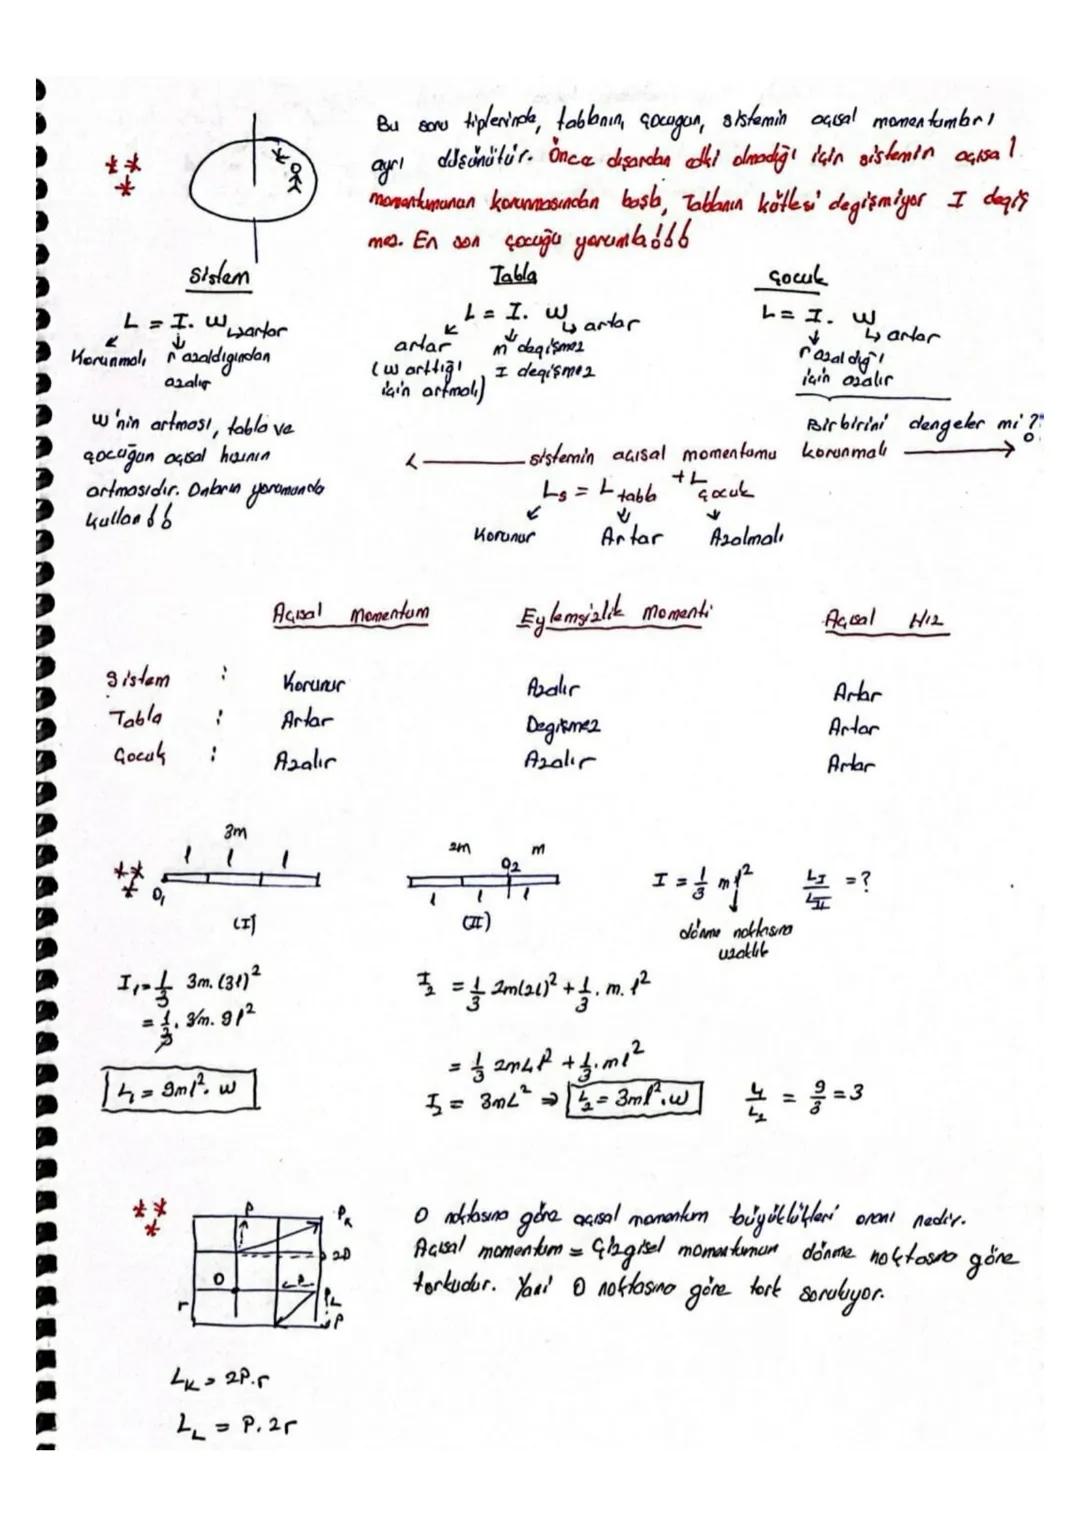 Bu soru tiplerinde, tablanın, çocuğun, sistemin açısal momentumları
ayrı düşünülür. Önce dışarıdan etki olmadığı için sistemin açısal
momentumunun korunmasından başla, Tablanın kütlesi değişmiyor I değiş
mez. En son çocuğu yorumla!
Sistem
L = I. W
artar
Korunmalı
r azaldığından
azalır
w'nin artması, tabla ve
çocuğun açısal hızının
artmasıdır. Onların yorumunda
kullan
Tabla
L = I. W
artar
artar
m değişmez
(w arttığı
I değişmez
için artmalı)
Çocuk
L = I. W
artar
r azaldığı
için azalır
Birbirini dengeler mi?
sistemin açısal momentumu korunmalı
Ls = L tabla + L çocuk
Korunur Artar Azalmalı
Açısal Momentum Eylemsizlik Momenti Açısal Hız
Sistem : Korunur Azalır Artar
Tabla : Artar Değişmez Artar
Çocuk : Azalır Azalır Artar
3m
l l l
O₁
(I)
2m m
O2
l l l
(II)
I = 1/3 ml²
dönme noktasına
uzaklık
LI/LII = ?
I₁ = 1/3 3m.(3l)²
= 1/3. 3m. 9l²
L₁ = 9ml². w
I₂ = 1/3 2m(2l)² + 1/3. m. l²
= 1/3 2m4l² + 1/3. ml²
I₂ = 3mL² ⇒ L₂ = 3ml².w
L₁/L₂ = 9/3 = 3
P
PK
2P
O
P
PL
r
P
O noktasına göre açısal momentum büyüklükleri oranı nedir.
Açısal momentum = Çizgisel momentumun dönme noktasına göre
torkudur. Yani O noktasına göre tork soruluyor.
LK = 2P.r
LL = P.2r